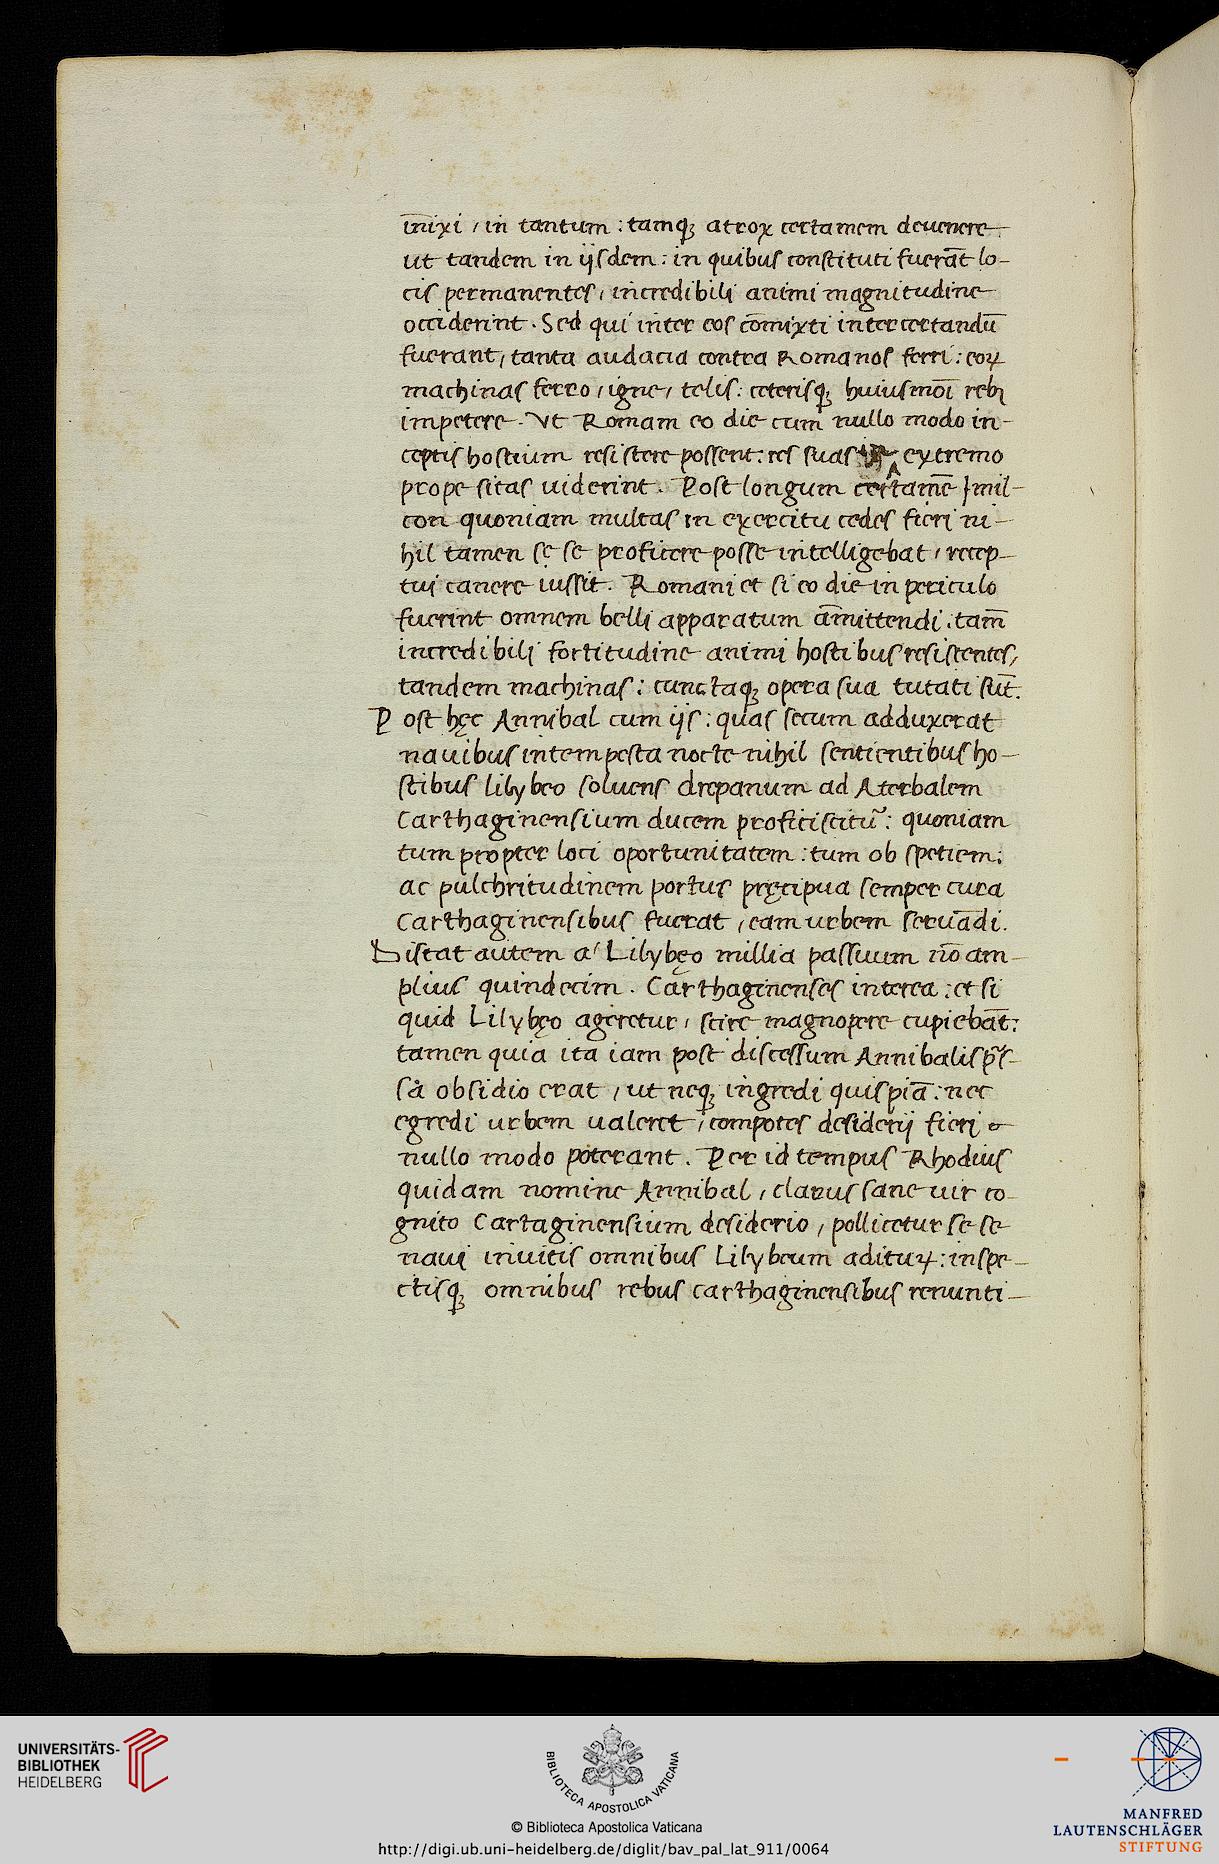 in̅ixi, in tantum: tamq; atrox certamem devenere
ut tandem in ijsdem: in quibus constituti fuera̅t lo-
cis permanentes, incredibili animi magnitudine
occiderint. Sed qui inter eos co̅mixti inter certandu̅
fuerant, tanta audacia contra Romanos ferri: eoꝝ
machinas ferro, igne, telis: ceterisq; huiusmo̅i reb;
impetere. Vt Romam eo die cum nullo modo in-
ceptis hostium resistere possent: res suas extremo
prope sitas uiderint. Post longum certame̅ Jmil-
con quoniam multas in exercitu cedes fieri ni-
hil tamen sę se proficere posse intelligebat, recep-
tui canere iussit. Romani et si eo die in periculo
fuerint omnem belli apparatum a̅mittendi: tam̅
incredibili fortitudine animi hostibus resistentes,
tandem machinas: cunctaq; opera sua tutati su̅t.
Post hęc Annibal cum ijs: quas secum adduxerat
nauibus intempesta nocte nihil sentientibus ho-
stibus lilybeo soluens drepanum ad Aterbalem
Carthaginensium ducem proficiscitu᷑: quoniam
tum propter loci oportunitatem: tum ob spetiem:
ac pulchritudinem portus pręcipua semper cura
Carthaginensibus fuerat, eam urbem serua̅di.
Distat autem a' Lilybęo millia passuum no̅ am-
plius quindecim. Carthaginenses interea: et si
quid Lilybęo ageretur, scire magnopere cupieba̅t:
tamen quia ita iam post discessum Annibalis p̅s-
sa obsidio erat, ut neq; ingredi quispia̅: nec
egredi urbem ualeret, compotes desiderij fieri
nullo modo poterant. Per id tempus Rhodius
quidam nomine Annibal, clarus sane uir co-
gnito Cartaginensium desiderio, pollicetur se se
naui inuitis omnibus Lilybeum adituꝝ: inspe-
ctisq; omnibus rebus carthaginensibus renunti-
UNIVERSITÄTS-
BIBLIOTHEK
HEIDELBERG
BIBLIOTECA APOSTOLICA VATICANA
© Biblioteca Apostolica Vaticana
http://digi.ub.uni-heidelberg.de/diglit/bav_pal_lat_911/0064
MANFRED
LAUTENSCHLÄGER
STIFTUNG